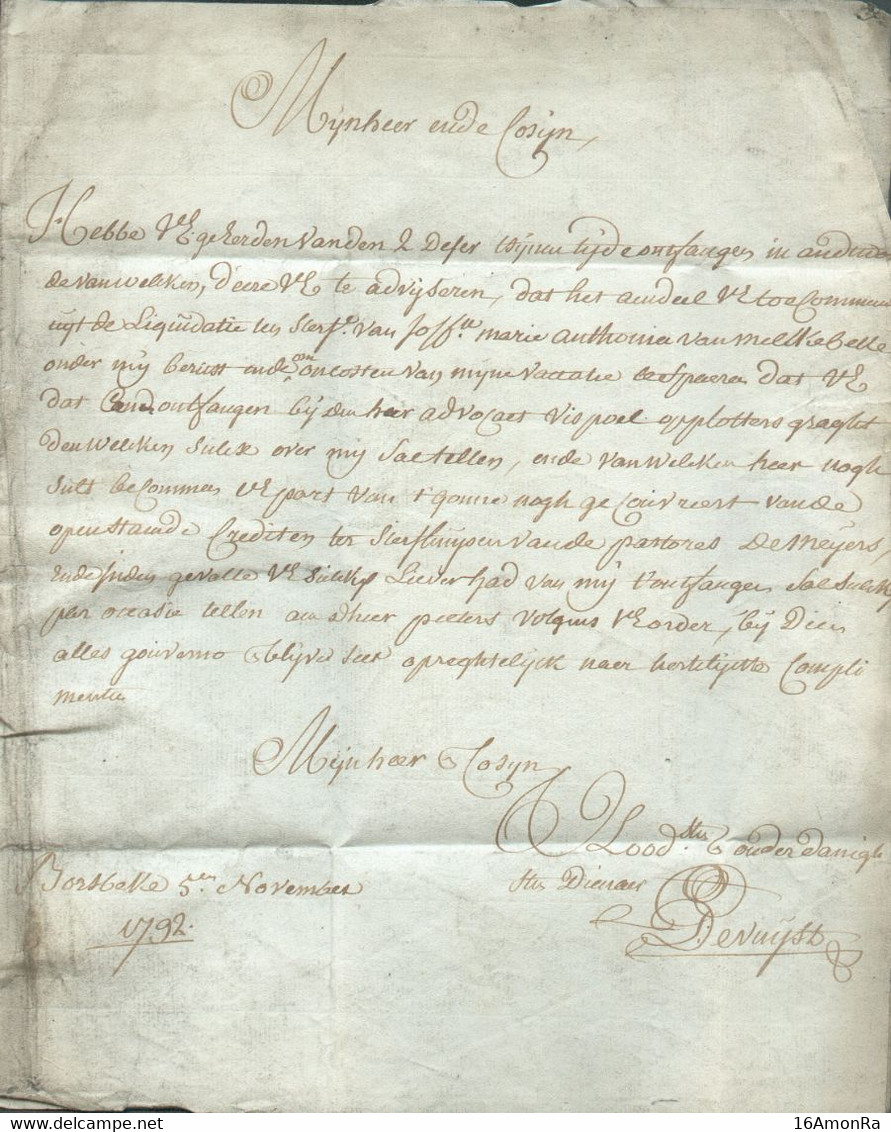 Mijnheer ende Cosijn,
Hebbe VE. geEerden vanden 2 deser t'sijnen tijde ontfangen in andwor
de van welcken, d'eere VE te advijseren, dat het aendeel VE toecommen
uijt de Liquidatie ten sterf. van Joff. marie anthonia van melckebeke
onder mij berust ende om oncosten van mijne vacatie te espaeren dat VE
dat Cond ontfangen bij den heer advocaet vispoel opplotters graght
den welcken sulcx over mij sal tellen, ende van welcken heer nogh
sult becommen VE part van t'gonne nogh gecouvreert vande
openstaende Crediten ter sterfhuijse vande pastores De Meyers,
ende inden gevalle VE sulckx Liever had van mij t'ontfangen sal sulckx
per occasie tellen aen d'heer pieters volgens VE order, bij dien
alles gouverno & blijve seer opreghtelijck naer hertelijcke Compli
menten
Mijnheer & Cosyn
VE Oodtm. & onderdanigh
sten Dienaer
Borsbeke 5.en November
1792.
Devuijst
16AmonRa